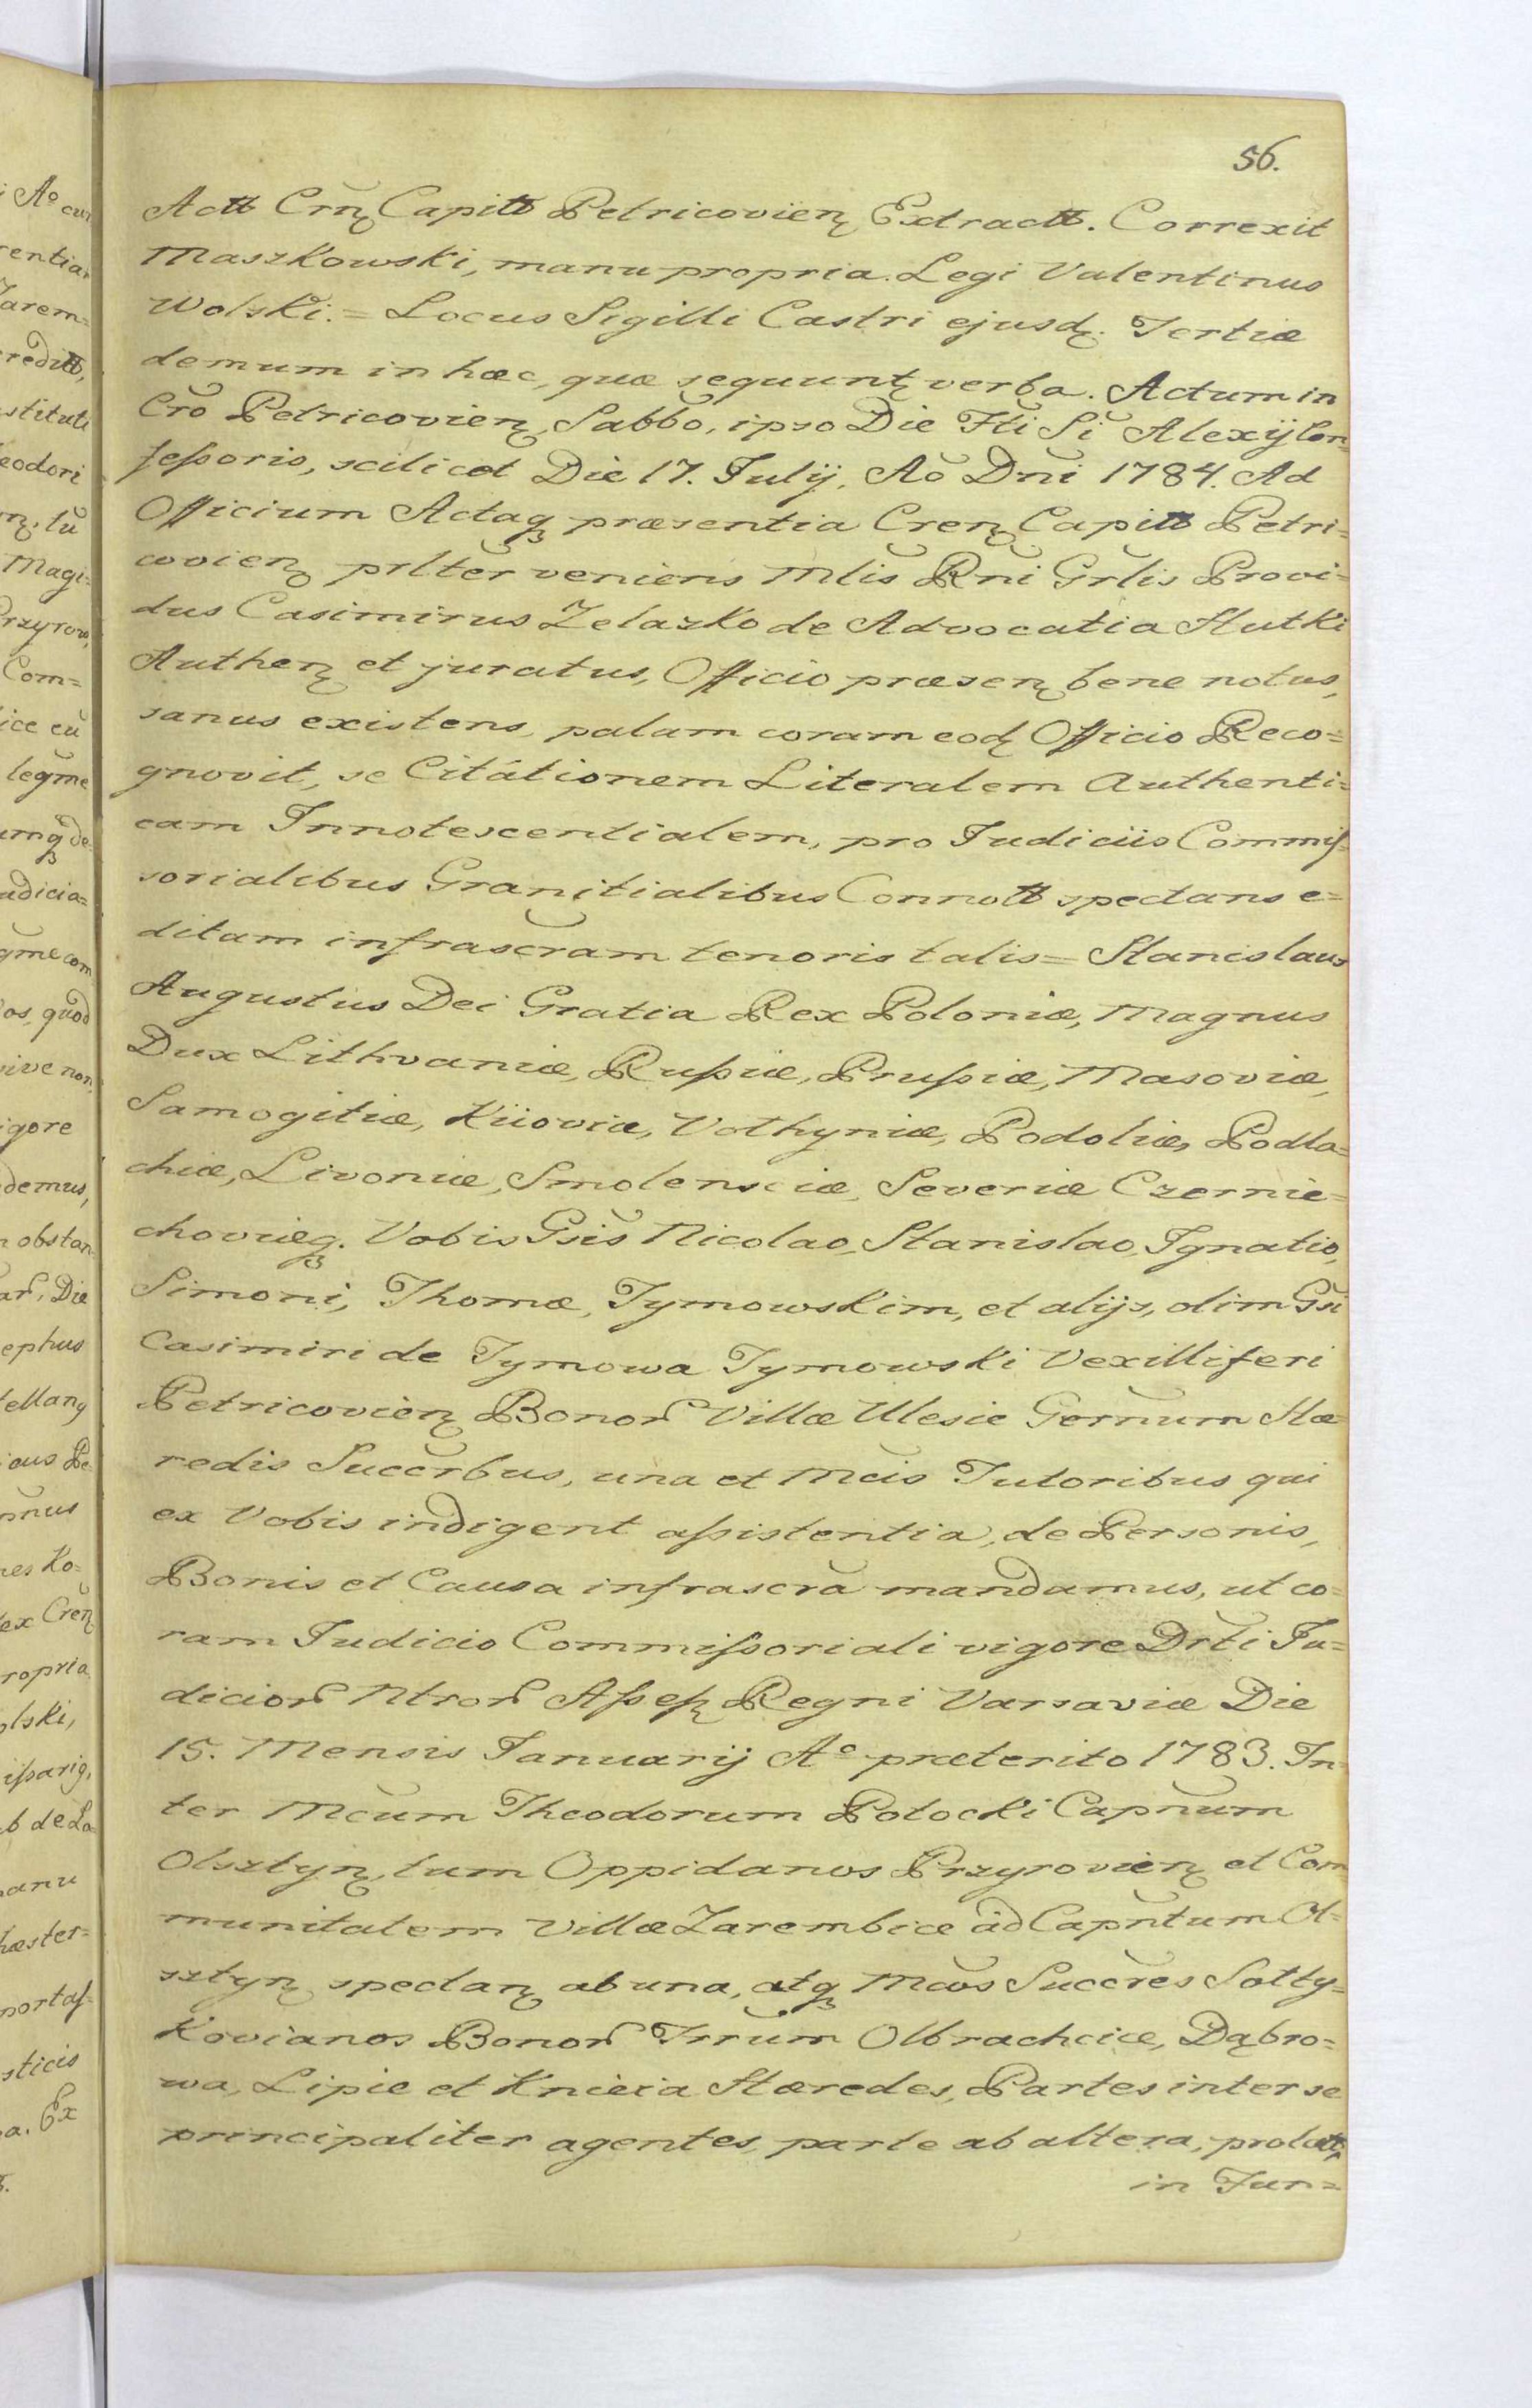 56.
Actt Crn̄ Capitt Petricovien Extractt. Correxit
Maszkowski, manu propria. Legi Valentinus
Wolski. = Locus Sigilli Castri ejusd. Tertiæ
demum in hæc, quæ sequunt verba. Actum in
Crō Petricovien, Sabbō, ipso Die Fti Si Alexij Con=
feſsoris, scilicet Die 17. Julij, Aō Dn̄i 1784. Ad
Officium Actaq præsentia Cren Capitt Petri=
covien prlter veniens Mlis Rn̄i Grlis Provi=
dus Casimirus Zelazko de Advocatia Hutki
Authen et juratus, Officio præsen bene notus,
sanus existens, palam coram eod Officio Reco=
gnovit, se Citátionem Literalem Authenti=
cam Innotescentialem, pro Judiciis Commiſ=
sorialibus Granitialibus Connott spectans e=
ditam infrascram tenoris talis = Stanislaus
Augustus Dei Gratia Rex Poloniæ, Magnus
Dux Lithvaniæ, Ruſsiæ, Pruſsiæ, Masoviæ,
Samogitiæ, Kiioviæ, Volhyniæ, Podoliæ, Podla=
chiæ, Livoniæ, Smolensciæ, Severiæ Czernie=
choviæq. Vobis Gsis Nicolao, Stanislao, Ignatio,
Simoni, Thomæ, Tymowskim, et alijs, olim Gsi
Casimiri de Tymowa Tymowski Vexilliferi
Petricovien Bonor Villæ Ulesie Gernum Hæ=
redis Succrbus, una et Mcis Tutoribus qui
ex Vobis indigent aſsistentia, de Personis,
Bonis et Causa infrascra mandamus, ut co=
ram Judicio Commiſsoriali vigore Drti Ju=
dicior Ntror Aſseſs Regni Varsaviæ Die
15. Mensis Januarij Aº præterito 1783. In=
ter Mcum Theodorum Potocki Capnum
Olsztyn, tum Oppidanos Przyrovien et Com
munitatem Villæ Zarembice ad Capntum Ol=
sztyn spectan ab una, atq Mcos Succres Sołty=
kovianos Bonor Irrum Olbrachcice, Dąbro=
wa, Lipie et Knieia Hæredes, Partes inter se
principaliter agentes, parte ab altera, prolatt,
in Fun=